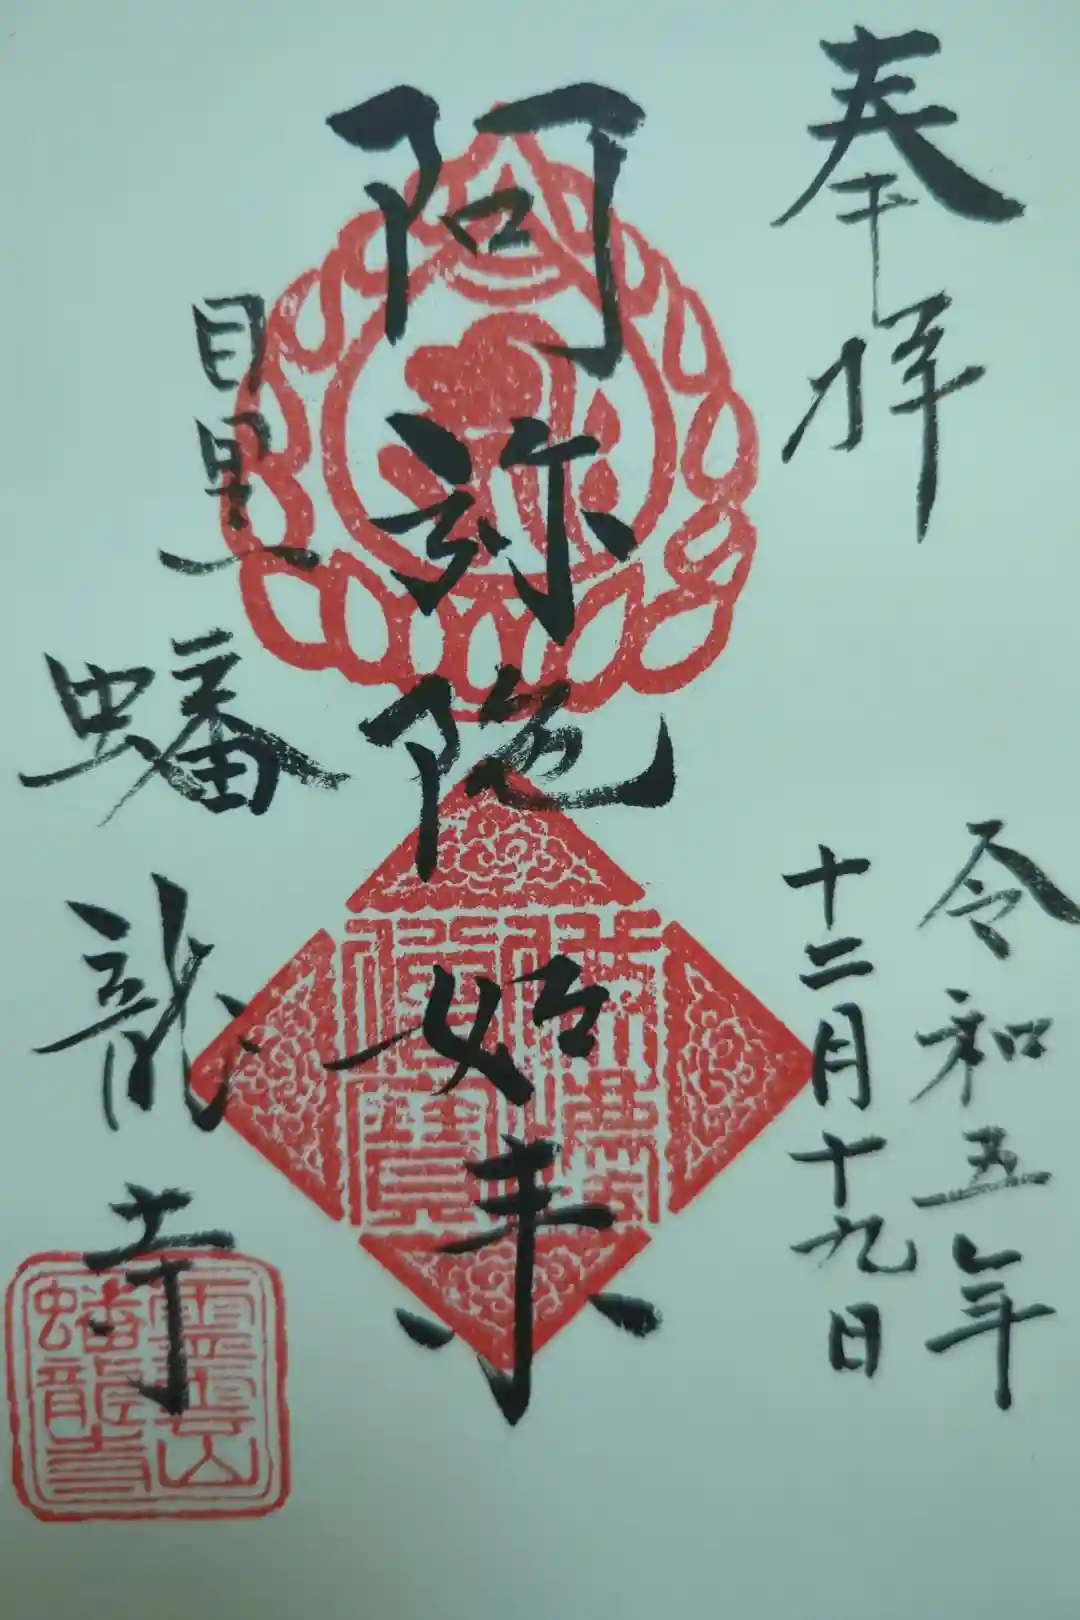 奉拝
令和五年
十二月十九日
阿弥陀如来
佛法僧寳
目黒
蟠龍寺
霊雲山
蟠龍寺